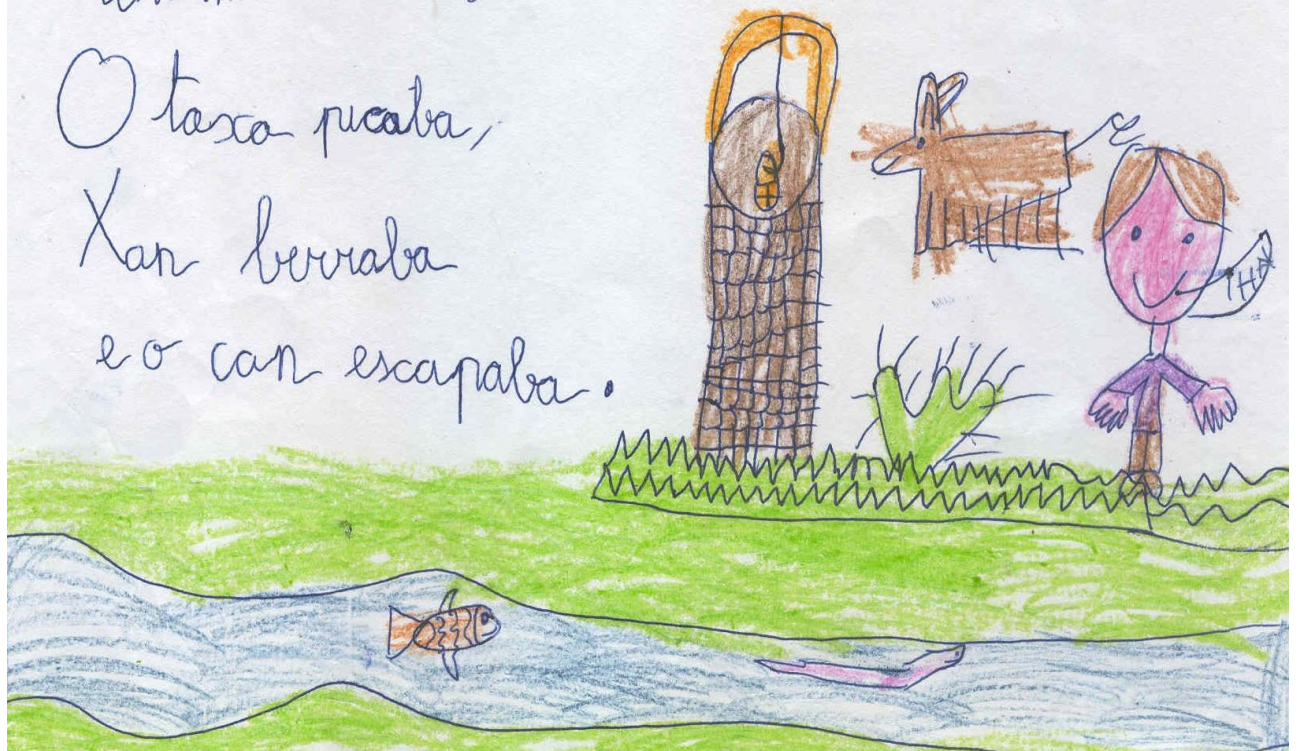 O toxo picaba,
Xan berraba
e o can escapaba.